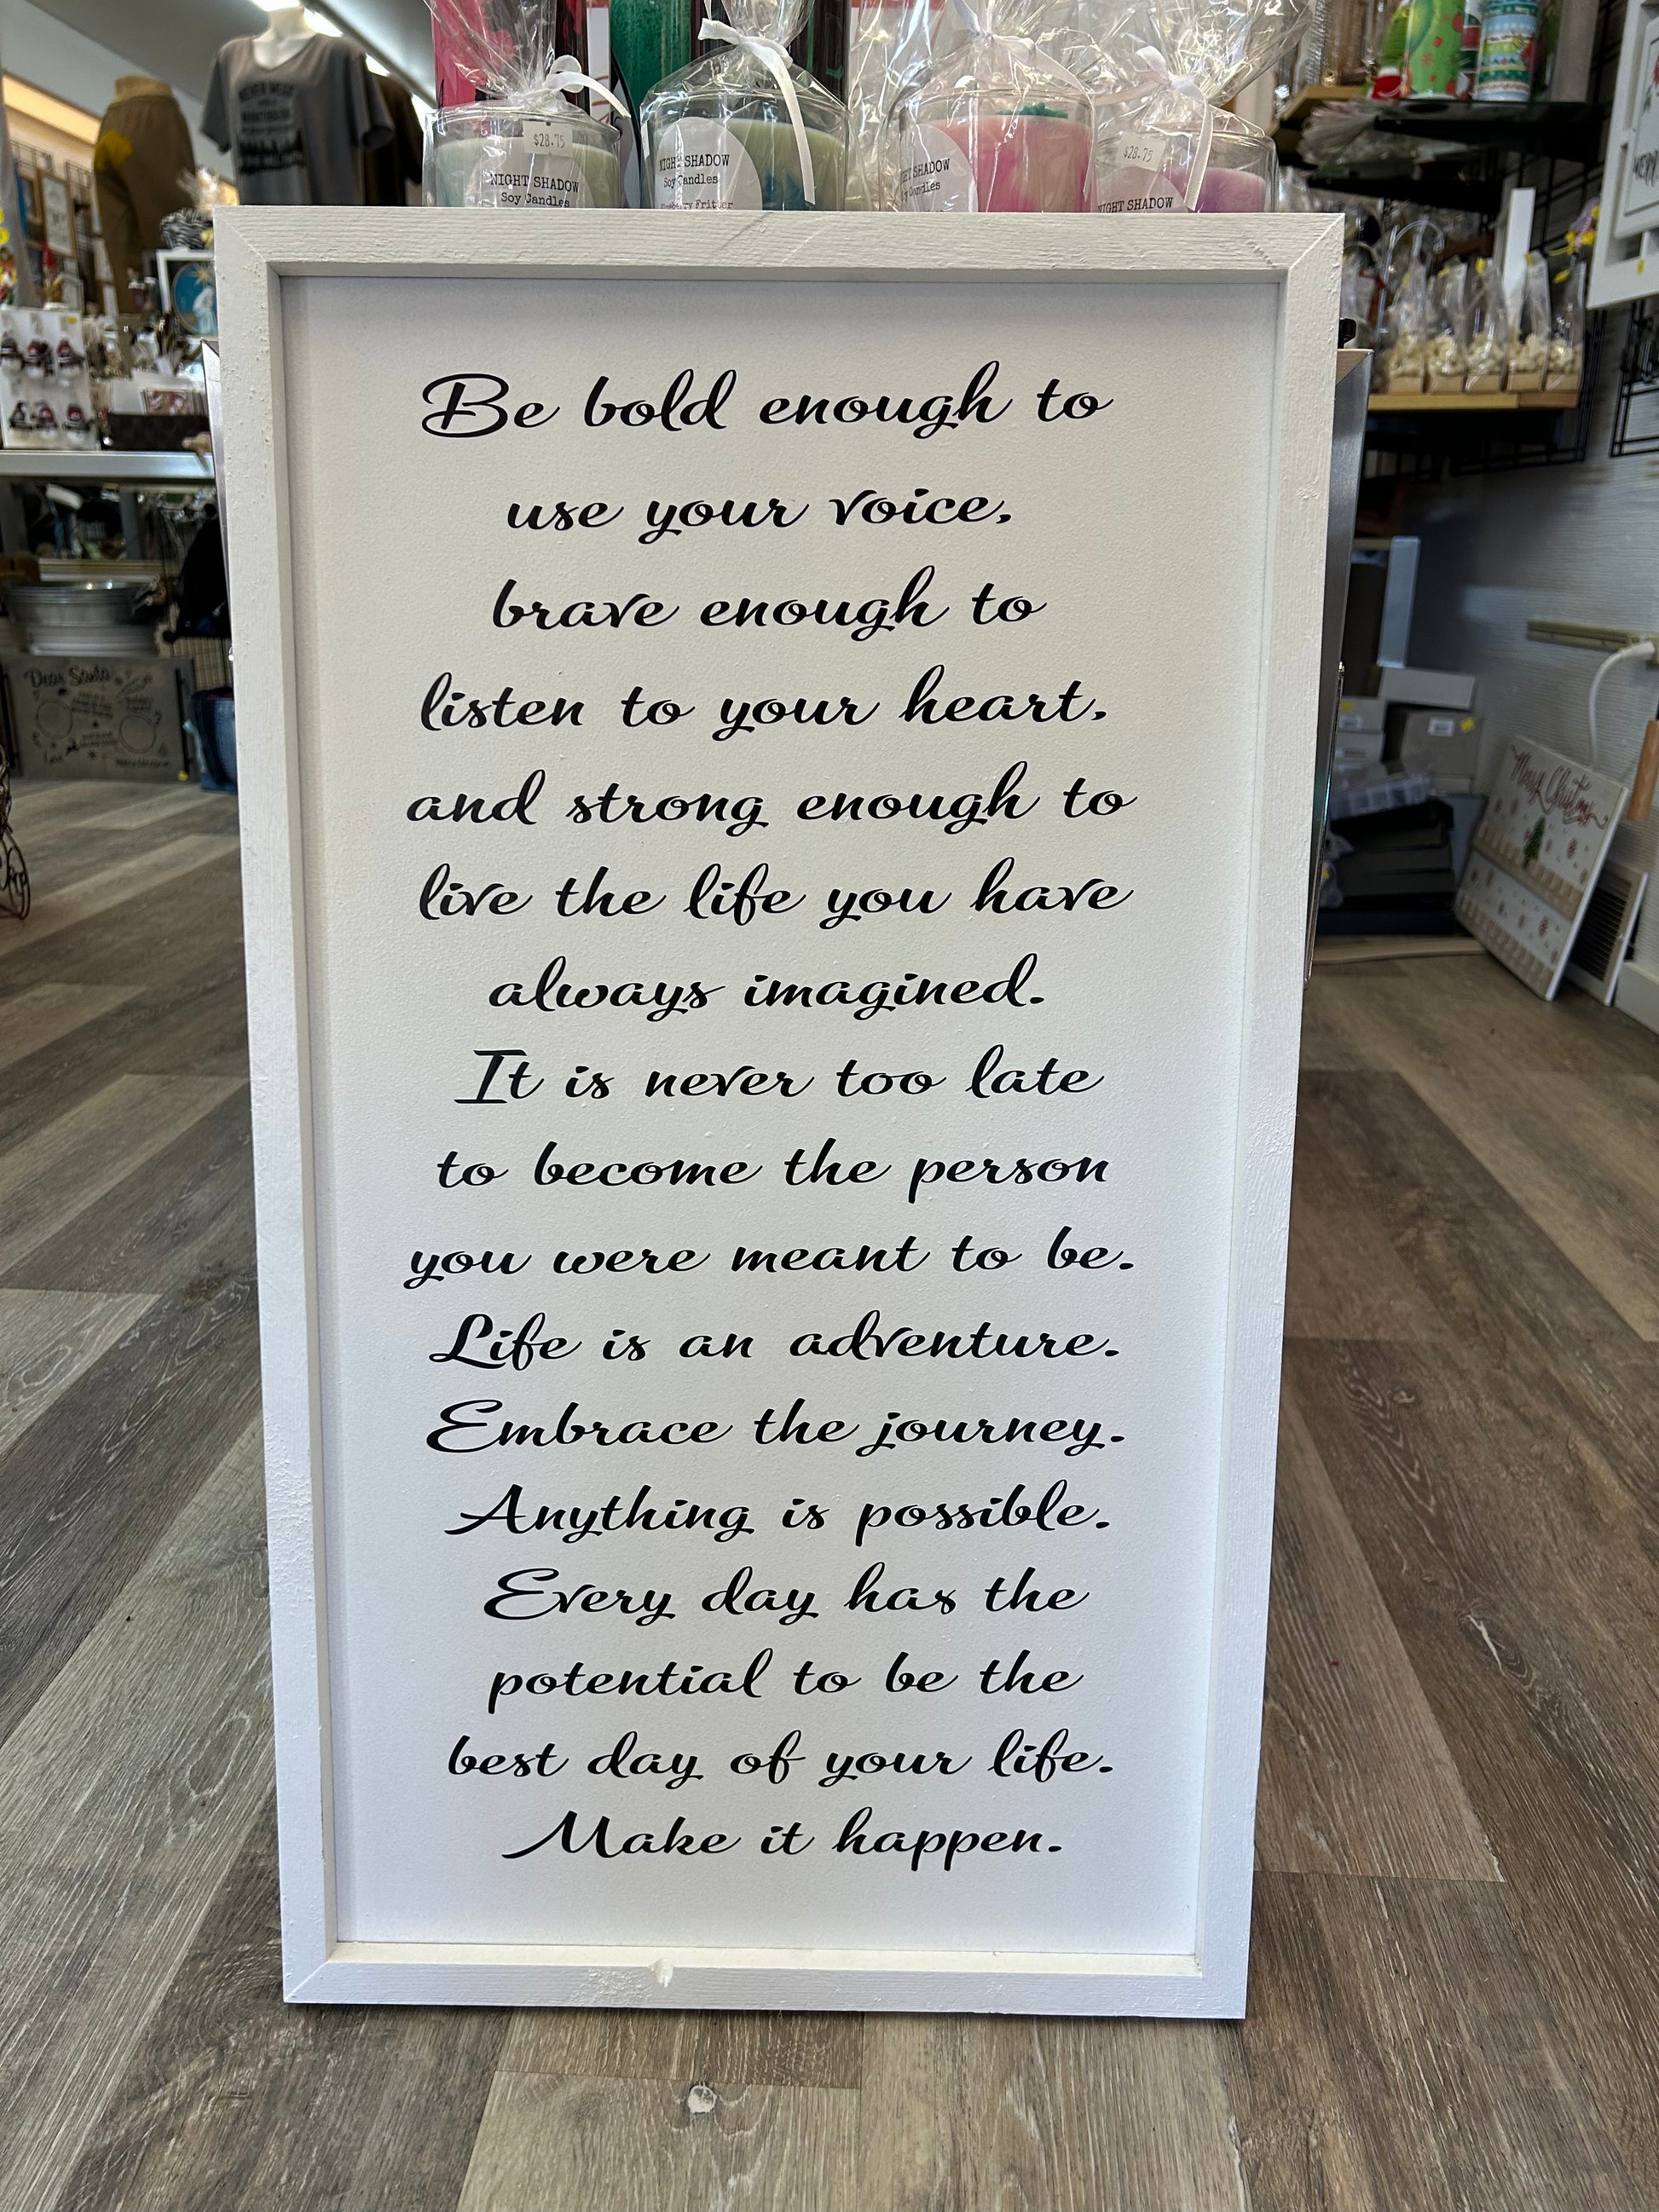 $28.75
NIGHT SHADOW
Soy Candles
NIGHT SHADOW
Soy Candles
Fritter
SHADOW
Soy Candles
$28.75
NIGHT SHADOW
Be bold enough to
use your voice,
brave enough to
listen to your heart,
and strong enough to
live the life you have
always imagined.
It is never too late
to become the person
you were meant to be.
Life is an adventure.
Embrace the journey.
Anything is possible.
Every day has the
potential to be the
best day of your life.
Make it happen.
Dear Santa
Merry Christmas